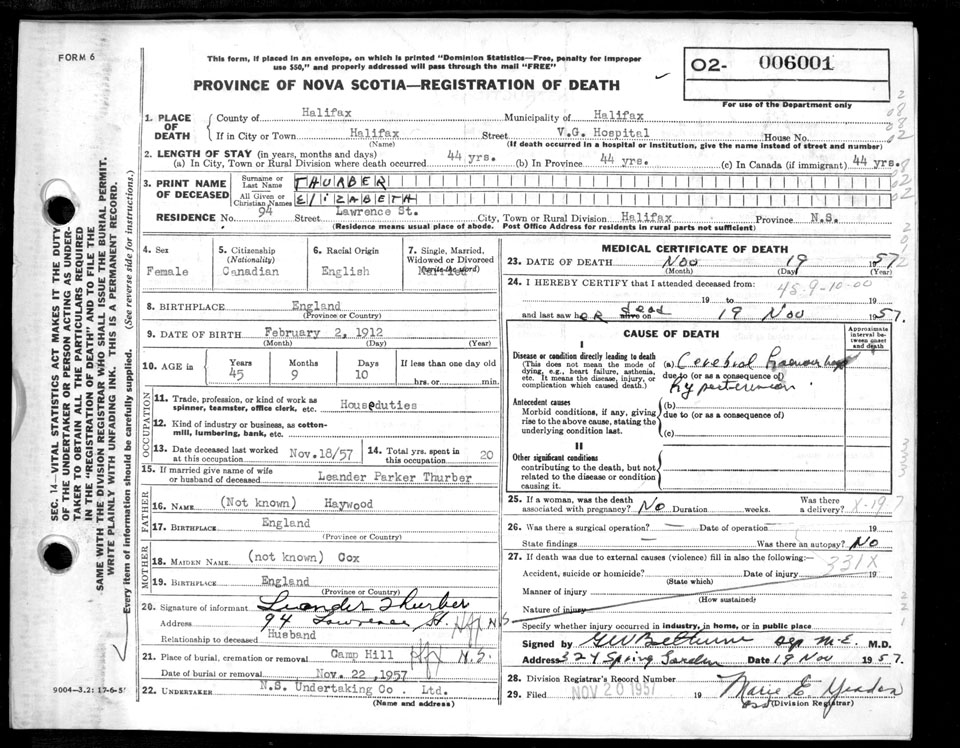 FORM 6
This form, if placed in an envelope, on which is printed "Dominion Statistics—Free, penalty for improper
use $50," and properly addressed will pass through the mail "FREE"
PROVINCE OF NOVA SCOTIA—REGISTRATION OF DEATH
O2- 006001
For use of the Department only
1. PLACE OF DEATH
County of Halifax Municipality of Halifax
If in City or Town Halifax Street V.G. Hospital House No.
(Name) (If death occurred in a hospital or institution, give the name instead of street and number)
2. LENGTH OF STAY (in years, months and days)
(a) In City, Town or Rural Division where death occurred 44 yrs. (b) In Province 44 yrs. (c) In Canada (if immigrant) 44 yrs.
3. PRINT NAME OF DECEASED
Surname or Last Name THURBER
All Given or Christian Names ElizABETH
RESIDENCE No. 94 Street Lawrence St. City, Town or Rural Division Halifax Province N.S.
(Residence means usual place of abode. Post Office Address for residents in rural parts not sufficient)
4. Sex
Female
5. Citizenship
(Nationality)
Canadian
6. Racial Origin
English
7. Single, Married,
Widowed or Divorced
(write the word)
Married
8. BIRTHPLACE England
(Province or Country)
9. DATE OF BIRTH February 2, 1912
(Month) (Day) (Year)
10. AGE in Years Months Days If less than one day old
45 9 10 hrs. or min.
OCCUPATION
11. Trade, profession, or kind of work as
spinner, teamster, office clerk, etc. Houseduties
12. Kind of industry or business, as cotton-
mill, lumbering, bank, etc.
13. Date deceased last worked
at this occupation Nov.18/57
14. Total yrs. spent in
this occupation 20
15. If married give name of wife
or husband of deceased Leander Parker Thurber
FATHER
16. NAME (Not known) Haywood
17. BIRTHPLACE England
(Province or Country)
MOTHER
18. MAIDEN NAME (not known) Cox
19. BIRTHPLACE England
(Province or Country)
20. Signature of informant Leander Thurber
Address 94 Lawrence St. Hfx N.S
Relationship to deceased Husband
21. Place of burial, cremation or removal Camp Hill Hfx N.S.
Date of burial or removal Nov. 22, 1957
22. UNDERTAKER N.S. Undertaking Co. Ltd.
(Name and address)
MEDICAL CERTIFICATE OF DEATH
23. DATE OF DEATH Nov 19 1957
(Month) (Day) (Year)
24. I HEREBY CERTIFY that I attended deceased from:
45-9-10-00
19 to 19
and last saw her alive on dead 19 Nov 1957.
CAUSE OF DEATH
Approximate interval between onset and death
I
Disease or condition directly leading to death
(This does not mean the mode of
dying, e.g., heart failure, asthenia,
etc. It means the disease, injury, or
complication which caused death.)
(a) Cerebral Haemorrhage
due to (or as a consequence of)
Hypertension
Antecedent causes
Morbid conditions, if any, giving
rise to the above cause, stating the
underlying condition last.
(b)
due to (or as a consequence of)
(c)
II
Other significant conditions
contributing to the death, but not
related to the disease or condition
causing it.
25. If a woman, was the death
associated with pregnancy? No Duration weeks. Was there
a delivery? X-19
26. Was there a surgical operation? — Date of operation — 19
State findings — Was there an autopsy? No
27. If death was due to external causes (violence) fill in also the following:—
331X
Accident, suicide or homicide? Date of injury 19
(State which)
Manner of injury
(How sustained)
Nature of injury
Specify whether injury occurred in industry, in home, or in public place
Signed by M.E. M.D.
Address 324 Spring Garden Date 19 Nov 1957.
28. Division Registrar's Record Number
29. Filed NOV 20 1957 19 Marie E.
(Division Registrar)
SEC. 14—VITAL STATISTICS ACT MAKES IT THE DUTY
OF THE UNDERTAKER OR PERSON ACTING AS UNDER-
TAKER TO OBTAIN ALL THE PARTICULARS REQUIRED
IN THE "REGISTRATION OF DEATH" AND TO FILE THE
SAME WITH THE DIVISION REGISTRAR WHO SHALL ISSUE THE BURIAL PERMIT.
WRITE PLAINLY WITH UNFADING INK. THIS IS A PERMANENT RECORD.
Every item of information should be carefully supplied. (See reverse side for instructions.)
9004—3.2: 17-6-5